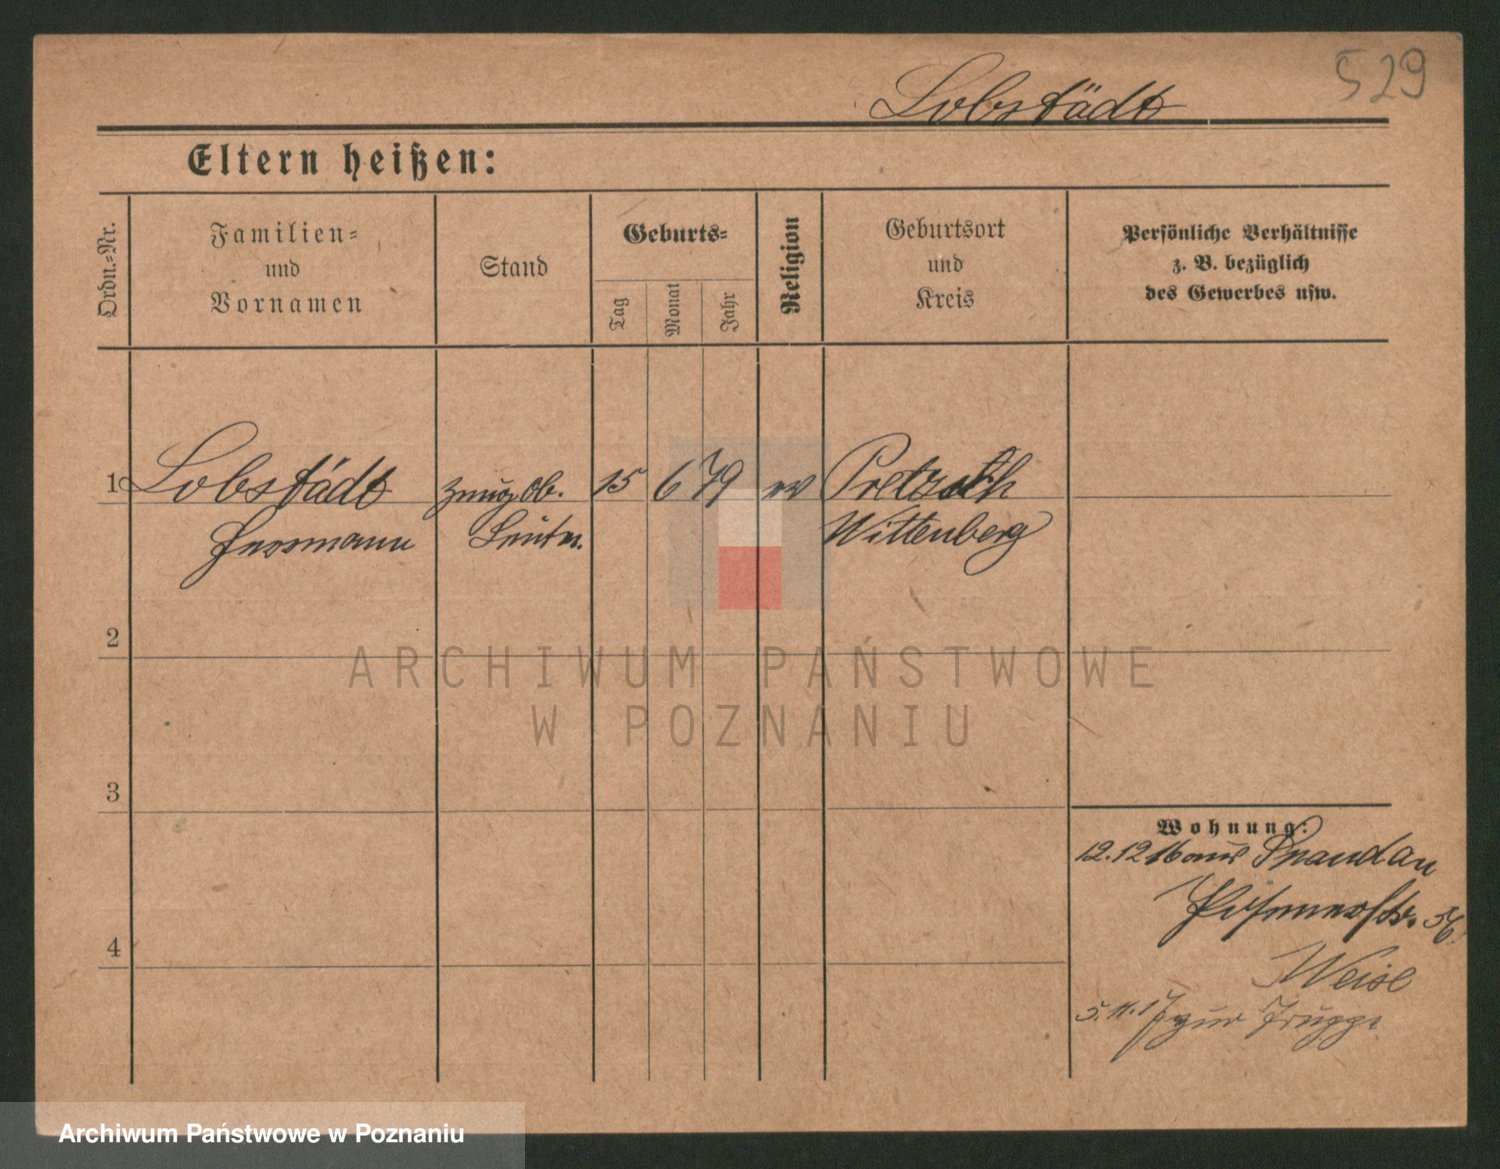 529
Lobstädt
Eltern heißen:
Ordn.-Nr.
Familien-
und
Vornamen
Stand
Geburts-
Tag
Monat
Jahr
Religion
Geburtsort
und
Kreis
Persönliche Verhältnisse
z. B. bezüglich
des Gewerbes usw.
1 Lobstädt Zeug. Ob. 15 6 79 ev Pretzsch
Herrmann Leutn. Wittenberg
2
3
4
Wohnung:
12.12 16 aus Spandau
Posenerstr.
Weise
5.11.17 zur Truppe
ARCHIWUM PAŃSTWOWE
W POZNANIU
Archiwum Państwowe w Poznaniu